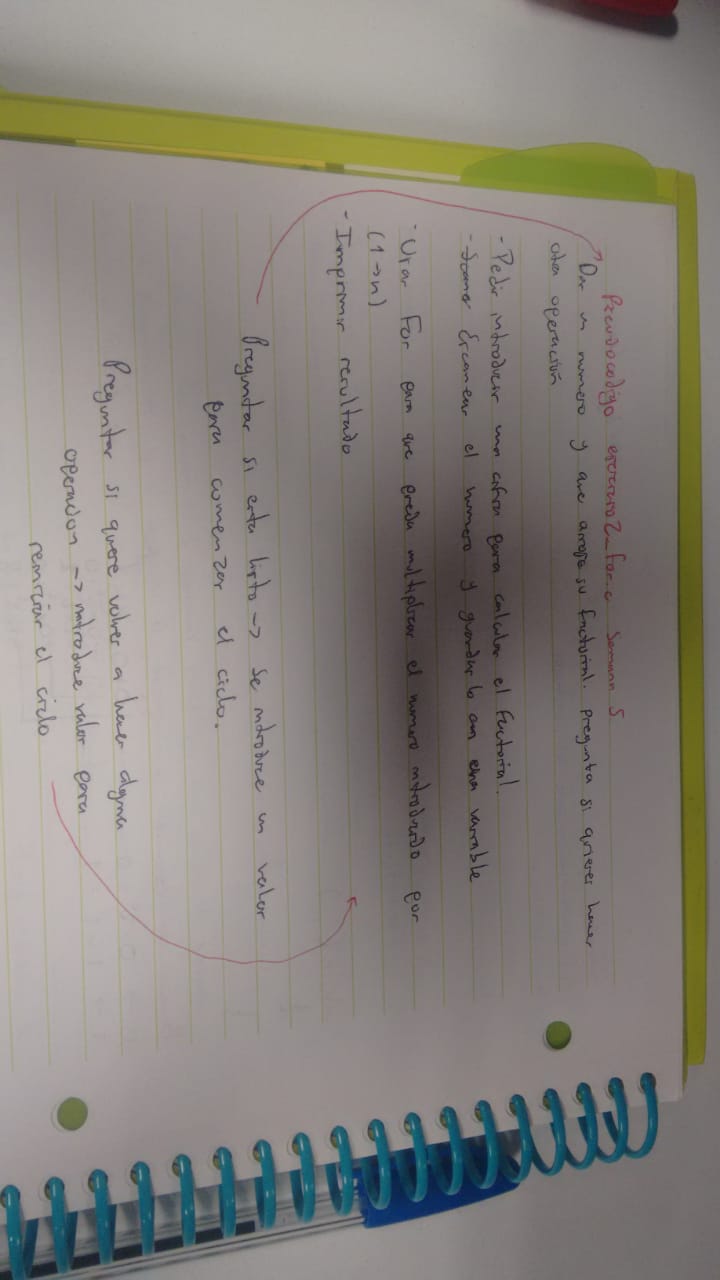 Pseudocodigo ejercicio 2 for.c Semana 5
Dar un numero y que arroje su factorial. Pregunta si quieres hacer
otra operación
- Pedir introducir una cifra para calcular el factorial.
- Escanear el numero y guardarlo en una variable
- Usar For para que pueda multiplicar el numero introducido por
(1->n)
- Imprimir resultado
Preguntar si esta listo -> Se introduce un valor
para comenzar el ciclo.
Preguntar si quiere volver a hacer alguna
operacion -> introduce valor para
reiniciar el ciclo